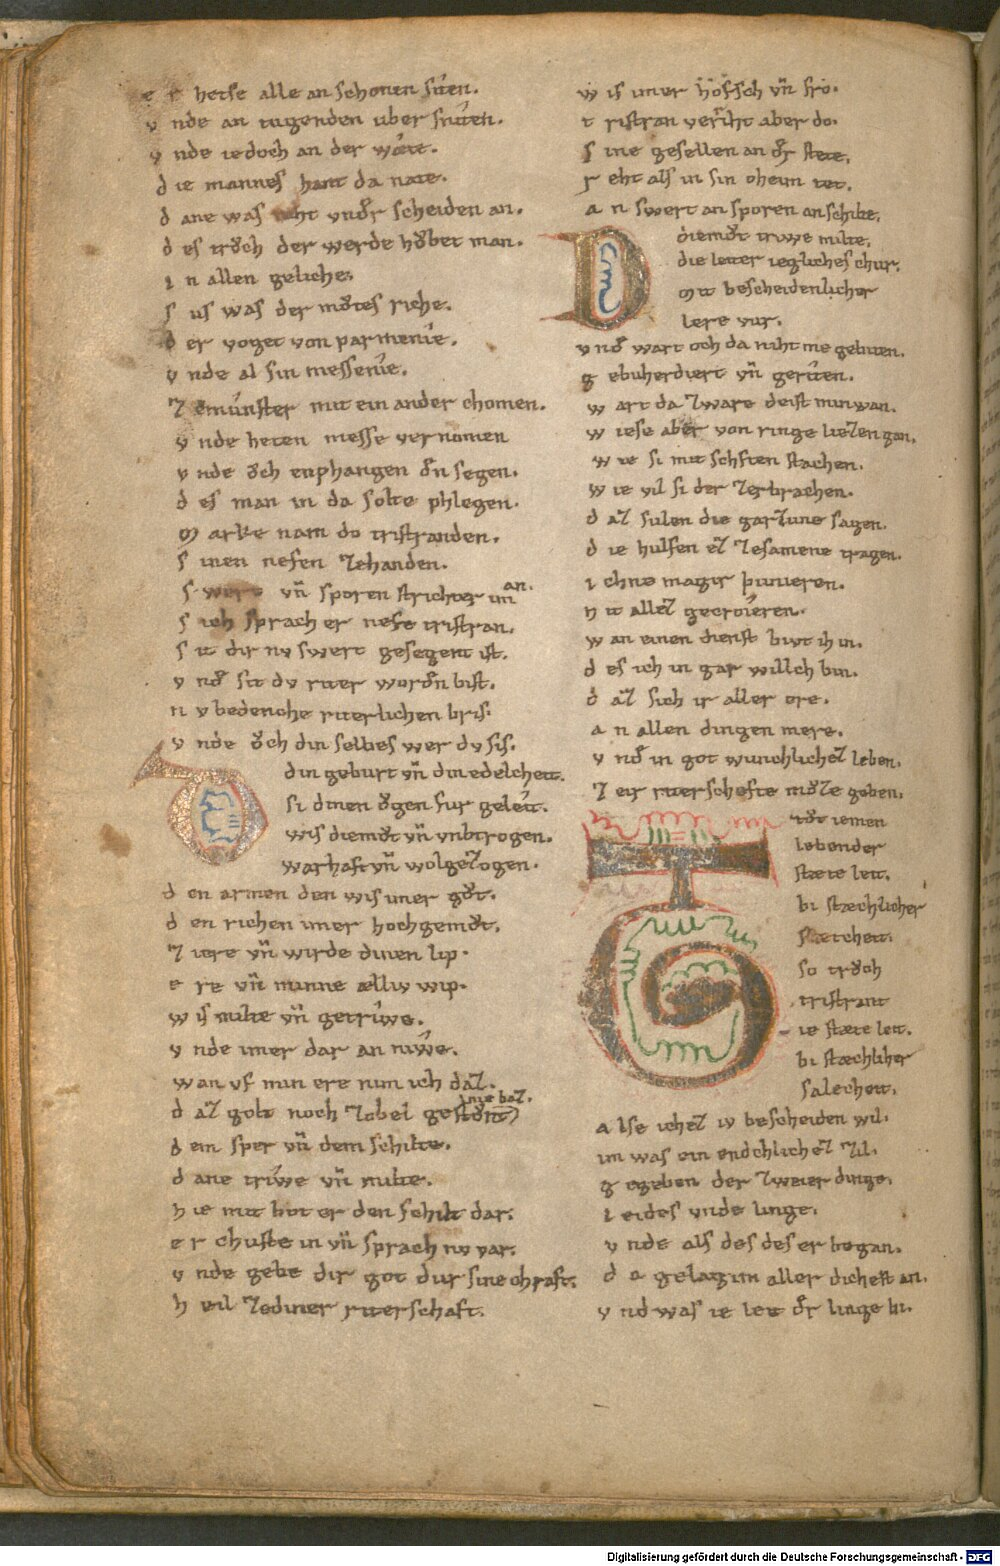 e r hetse alle an schonen siten.
v nde an tugenden uber sniten.
v nde iedoch an der wæte.
d ie mannes hant da nate.
d ane was niht vndr̄ scheiden an.
d es trǒch der werde hǒbet man.
i n allen gelichez
s us was der mǒtes riche.
d er voget von parmenie.
v nde al sin messenie.
z emunster mit ein ander chomen.
v nde heten messe vernomen
v nde ǒch enphangen dn̄ segen.
d es man in da solte phlegen.
m arke nam do tristranden.
s inen nefen zehanden.
s wert vn̄ sporen strichter im an.
s ich sprach er nefe tristran.
s it dir nv swert gesegent ist.
v nd̄ sit dv riter wordn̄ bist.
n v bedenche riterlichen bris.
v nde ǒch din selbes wer dv sis.
din geburt vn̄ din edelcheit.
si dinen ǒgen fur geleit.
wis diemǒt vn̄ vnbtrogen.
warhaft vn̄ wolgezogen.
d en armen den wis imer gǒt.
d en richen imer hochgemǒt.
z iere vn̄ wirde dinen lip.
e re vn̄ minneælliv wip.
w is milte vn̄ getriwe.
v nde imer dar an niwe.
wan vf min ere nim ich daz.
d az golt noch zobel gestǒnt nie baz.
d em sper vn̄ dem schilte.
d ane triwe vn̄ milte.
h ie mit bot er den schilt dar.
e r chuste in vn̄ sprach nv var.
v nde gebe dir got dur sine chraft.
h eil zediner riterschaft.
w is imer hǒfsch vn̄ fro.
t ristran veriht aber do.
s ine gesellen an dr̄ stete.
r eht als in sin oheim tet.
a n swert an sporen an schilte.
D diemǒt triwe milte.
die leiter iegliches chur.
mit bescheidenlicher
lere vur.
v nd̄ wart och da niht me gebiten.
g ebuherdiert vn̄ geriten.
w art da zware deist min wan.
w iese aber von ringe liezen gan.
w ie si mit schften stachen.
w ie vil si der zerbrachen.
d az sulen die garzune sagen.
d ie hulfen ez zesamene tragen.
i chne magir
n it allez gecroieren.
w an einen dienst biut ih in.
d es ich in gar willch bin.
d az sich ir aller ere.
a n allen dingen mere.
v nd̄ in got wunchlichez leben.
z eir riterschefte mǒze geben.
T rǒt iemen
lebender
stæte leit.
bi stæchlicher
sæilcheit.
so trǒch
tristrant
ie stæte leit.
bi stæchliher
salecheit.
a lse ichez iv bescheiden wil.
im was ein endchlichez zil.
g egeben der zweier dinge.
l eides vnde linge.
v nde als des des er began.
d a gelagim aller dichest an.
v nd was ie leit dr̄ linge bi.
Digitalisierung gefördert durch die Deutsche Forschungsgemeinschaft - DFG